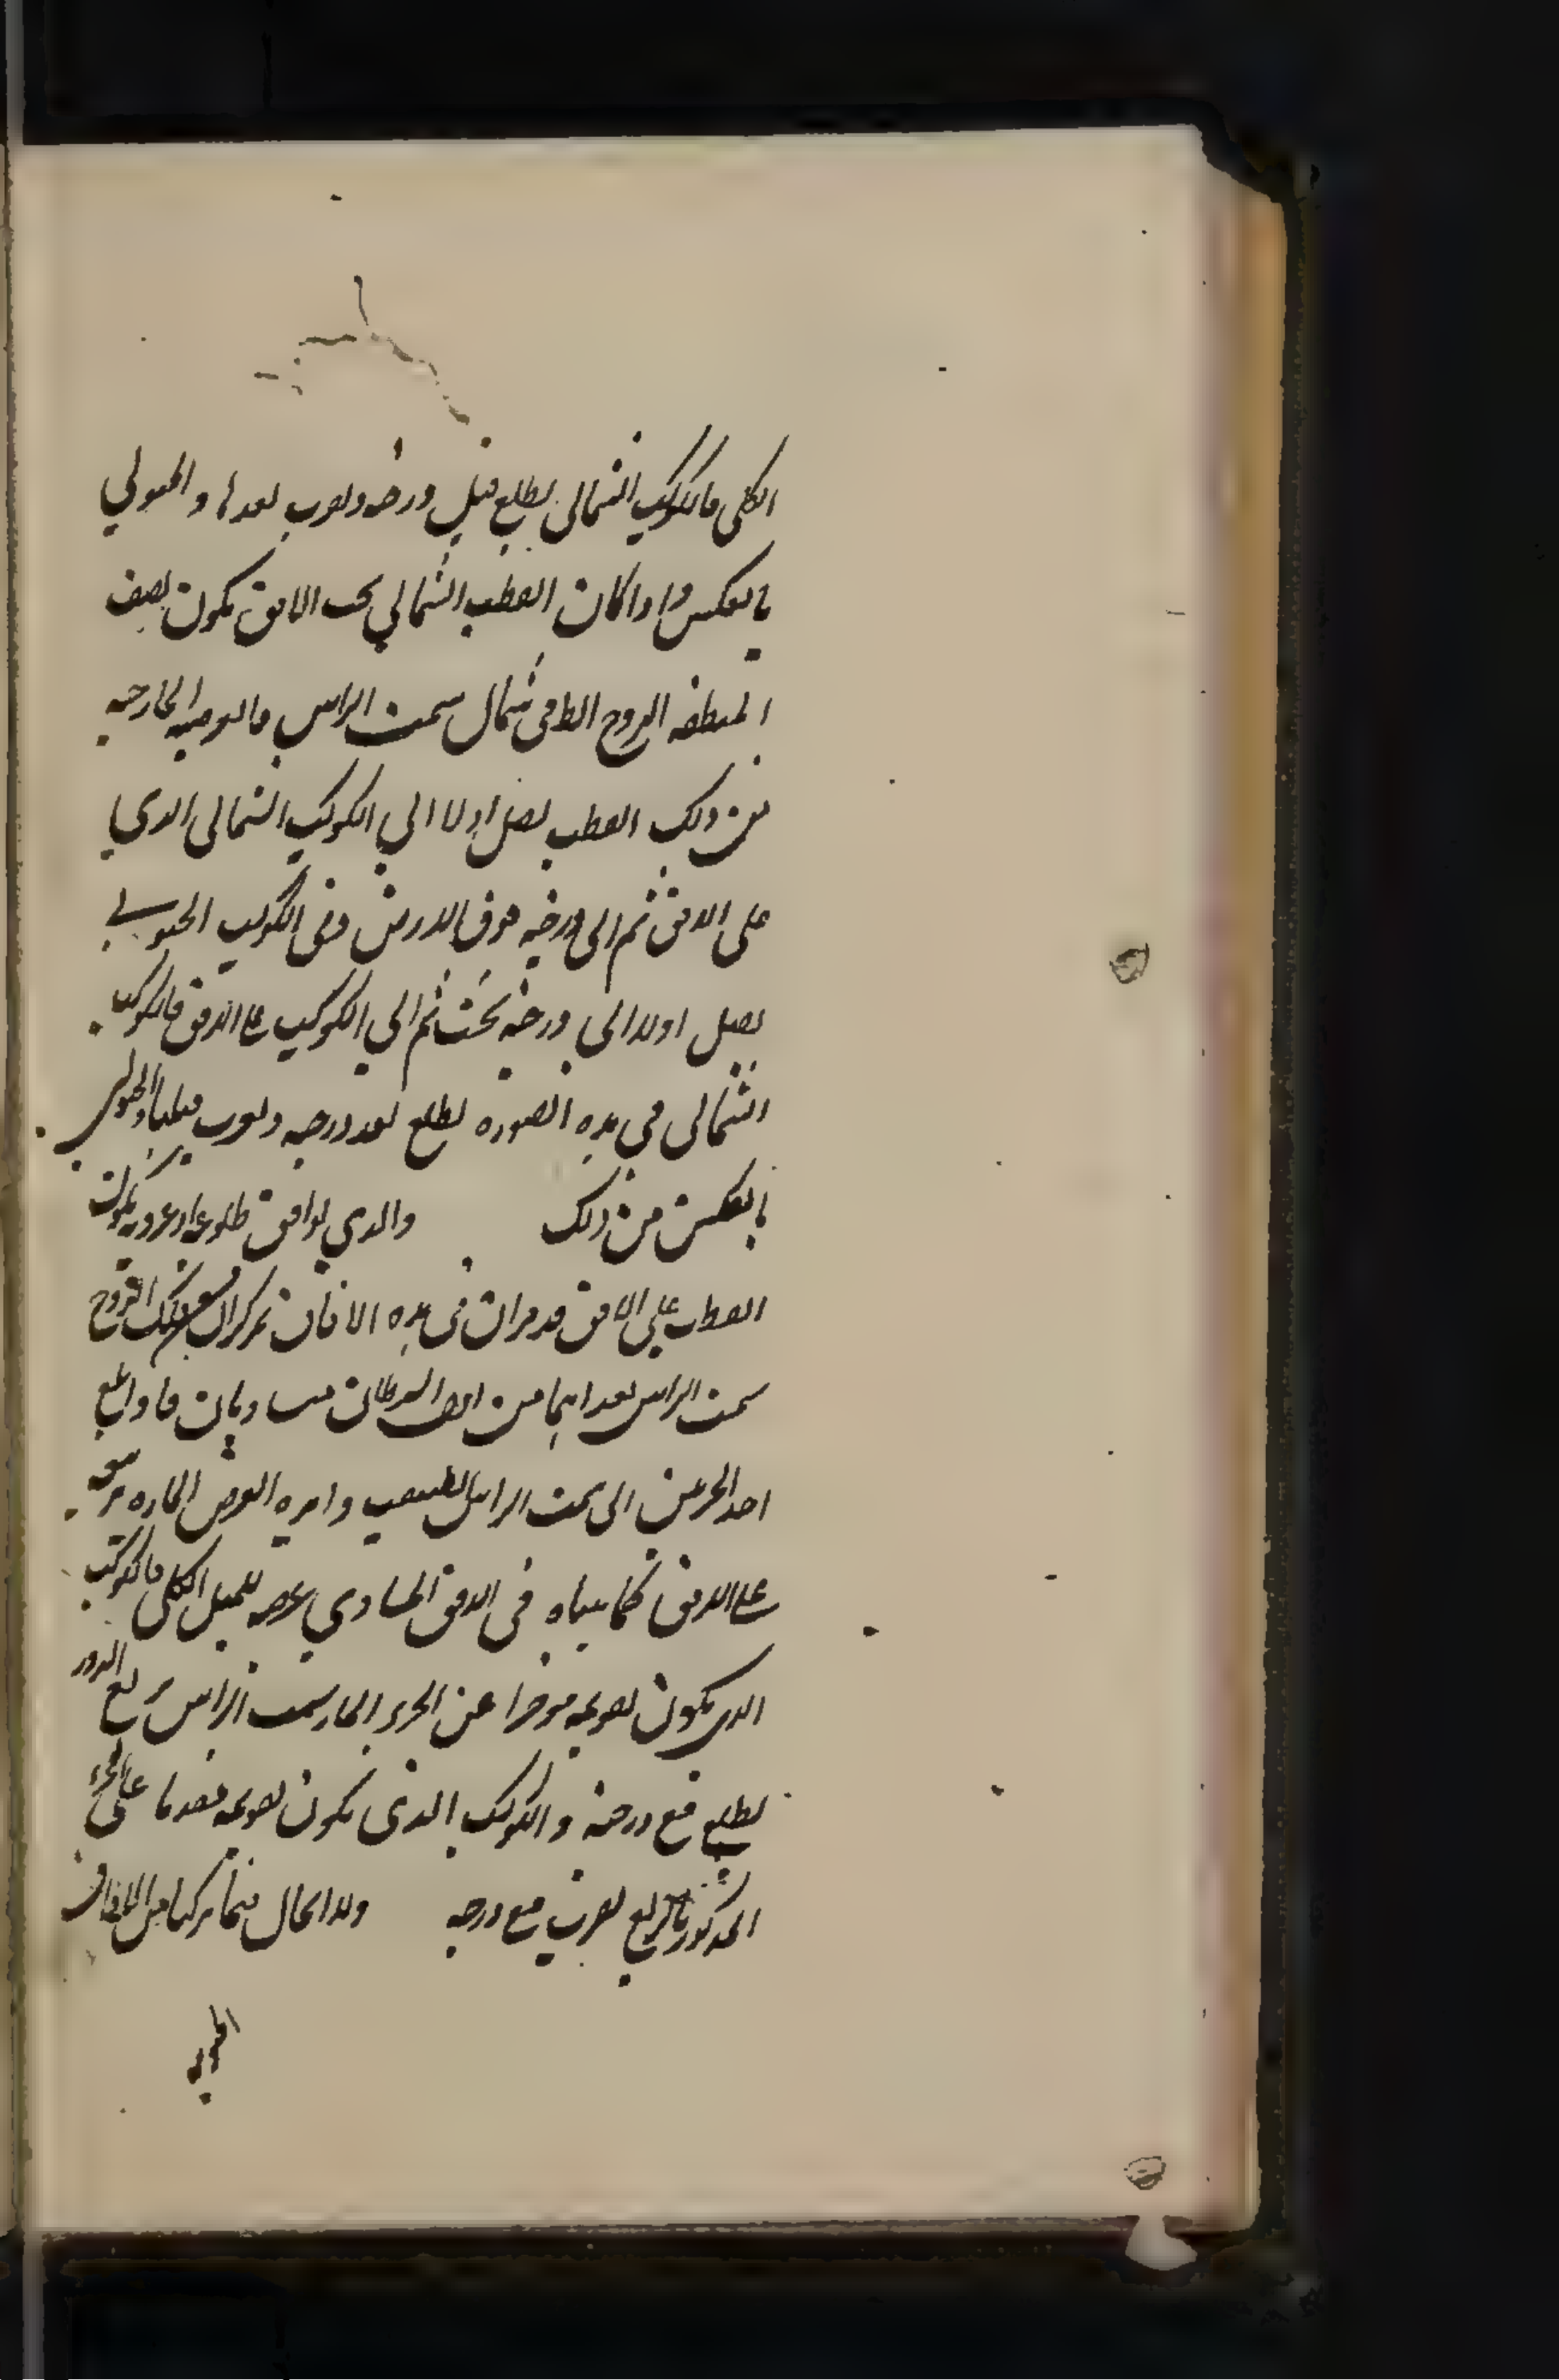 الكلى فالكوكب الشمالى يطلع قبل درجته ويغرب بعدها والجنوبي
بالعكس واذا كان القطب الشمالي تحت الافق يكون نصف
المنطقه البروج الظاهر فى شمال سمت الراس فالقوسيه الخارجه
من ذلك القطب يصل اولا الي الكوكب الشمالى الذي
على الافق ثم الى درجته فوق الارض وفى الكوكب الجنوبي
يصل اولا الى درجته تحت ثم الي الكوكب على الافق فالكوكب
الشمالى فى هذه الصوره يطلع بعد درجته ويغرب قبلها والجنوبى
بالعكس من ذلك والذي يوافق طلوعه او غروبه يكون
القطب على الافق قد مر ان فى هذه الافاق يمر كل فلك البروج
سمت الراس بعداهما من راس السرطان متساويان فاذا بلغ
احد الجزئين الى سمت الراس انطبقت دايره العرض الماره
على الافق كما بيناه فى الافق المساوي عرضه للميل الكلى فالكوكب
الذى يكون تقويمه موخرا عن الجزء المار بسمت الراس بربع الدور
يطلع مع درجته والكوكب الذى يكون تقويمه مقدما على الجزء
المذكور بالربع يغرب مع درجته وهذا الحال فيما يركبا من الافاق